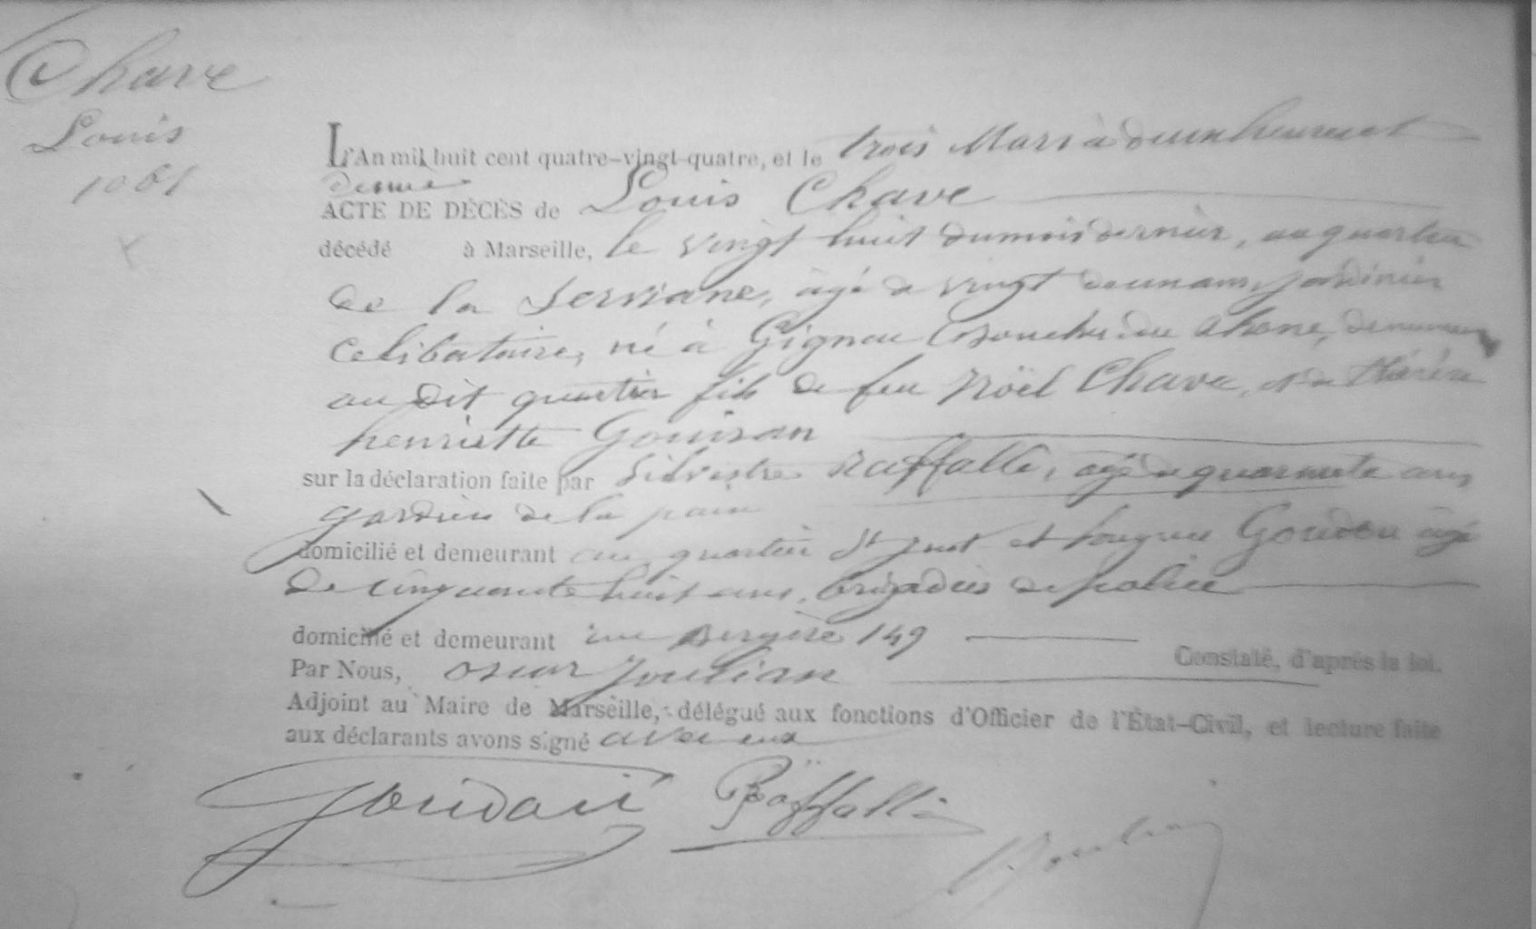 Chave
Louis
1061
L'An mil huit cent quatre-vingt-quatre, et le trois Mars à deux heures et
demie
ACTE DE DÉCÈS de Louis Chave
décédé à Marseille, le vingt huit du mois dernier, au quartier
de la Serviane, âgé de vingt deux ans, jardinier
celibataire, né à Gignac Bouches du Rhone, demeurant
au dit quartier fils de feu Noël Chave, et de Thérèse
henriette Gouiran
sur la déclaration faite par Silvestre Raffalli, agé de quarante ans
gardien de la paix
domicilié et demeurant au quartier St Just et Goudou âgé
de cinquante huit ans, brigadier de police
domicilié et demeurant rue Bergère 149
Constaté, d'après la loi.
Par Nous, Oscar Joulian
Adjoint au Maire de Marseille, délégué aux fonctions d'Officier de l'État-Civil, et lecture faite
aux déclarants avons signé avec eux
Raffalli